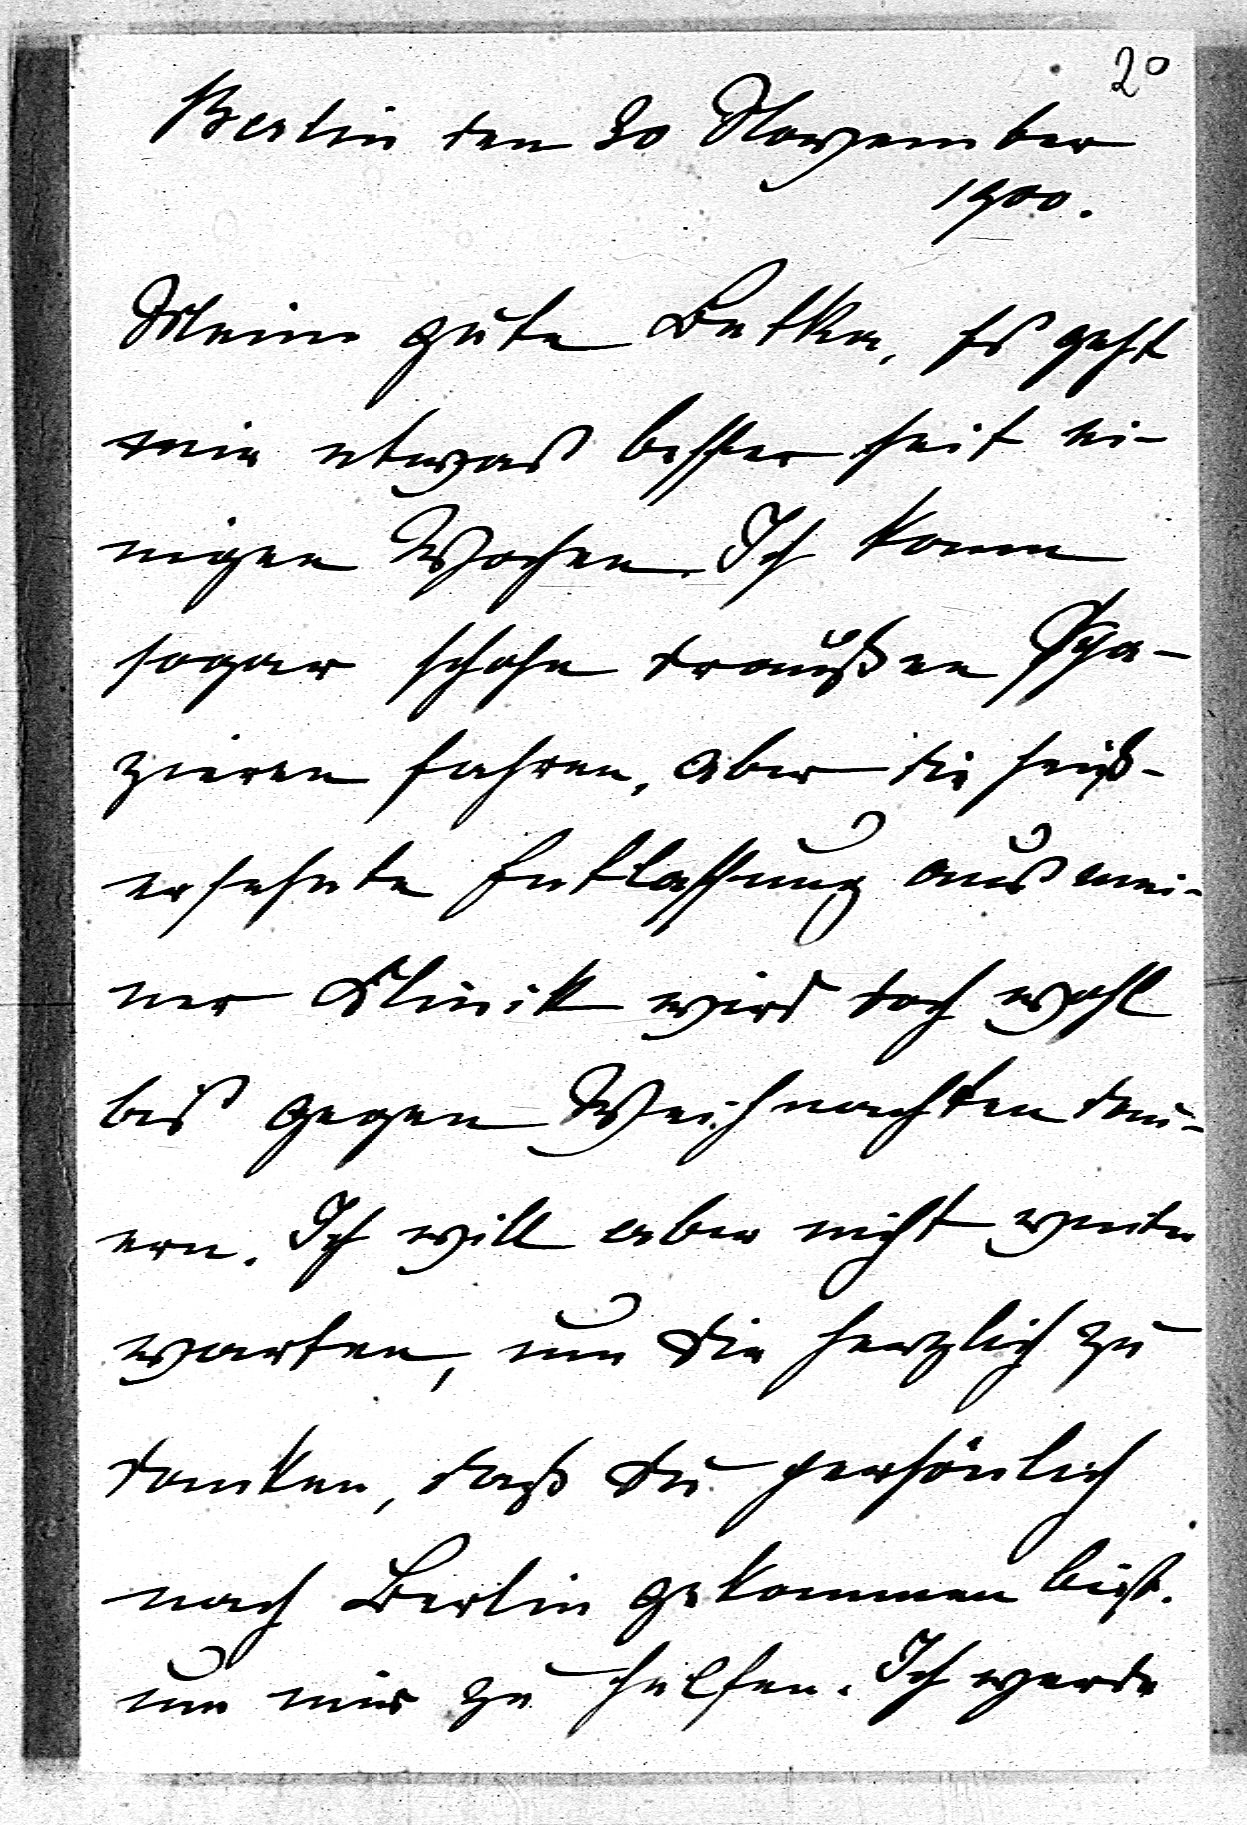 20
Berlin den 30 November
1900.
Meine gute Betka, Es geht
mir etwas besser seit ei-
nigen Wochen. Ich kann
sogar schohn draußen Spa-
zieren fahren, aber die heiß-
ersehnte Entlassung aus mei-
ner Klinik wird doch wohl
bis gegen Weihnachten dau-
ern. Ich will aber nicht weiter
warten, um Dir herzlich zu
danken, daß Du persönlich
nach Berlin gekommen bist.
um mir zu helfen. Ich werde